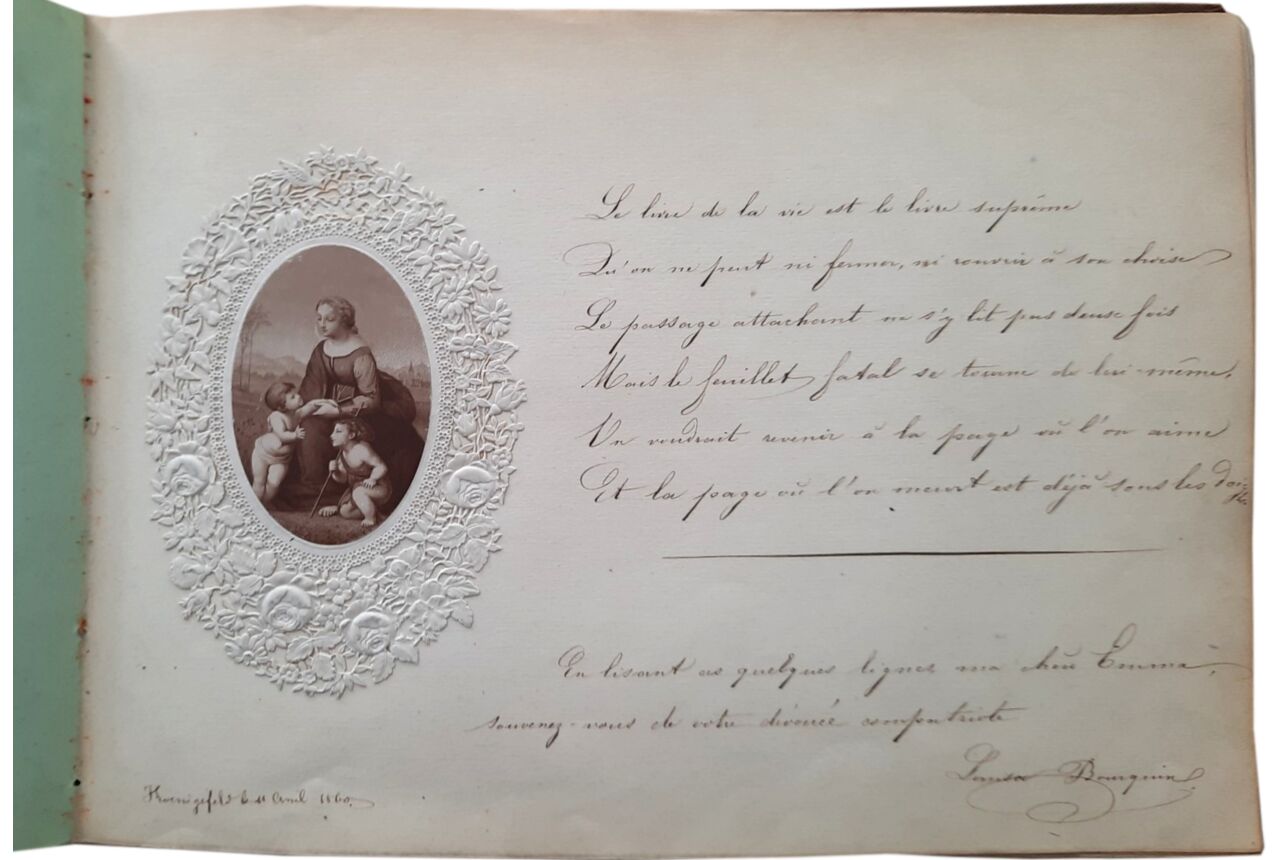 Le livre de la vie est le livre suprême
Qu'on ne peut ni fermer, ni rouvrir à son choise
Le passage attachant ne s'y lit pas deux fois
Mais le feuillet fatal se tourne de lui-même.
On voudrait revenir à la page où l'on aime
Et la page où l'on meurt est déjà sous les doigts
En lisant ces quelques lignes ma chère Emma,
souvenez-vous de votre dévouée compatriote
Louisa Bourquin
Koenigsfeld le 11 Avril 1860.